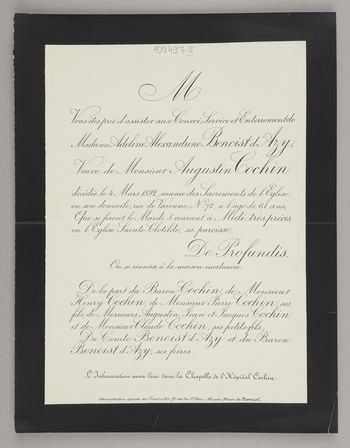 109497 II
M
Vous êtes prié d'assister aux Convoi, Service et Enterrement de
Madame Adeline Alexandrine Benoist d'Azy,
Veuve de Monsieur Augustin Cochin
décédée le 4 Mars 1892, munie des Sacrements de l'Eglise,
en son domicile, rue de Varenne, N° 72, à l'âge de 61 ans,
Qui se feront le Mardi 8 courant, à Midi très précis
en l'Eglise Sainte Clotilde, sa paroisse.
De Profundis.
On se réunira à la maison mortuaire.
De la part du Baron Cochin, de Monsieur
Henry Cochin, de Monsieur Pierre Cochin, ses
fils, de Messieurs Augustin, Jean et Jacques Cochin
et de Monsieur Claude Cochin, ses petits fils,
Du Comte Benoist d'Azy et du Baron
Benoist d'Azy, ses frères.
L'Inhumation aura lieu dans la Chapelle de l'Hôpital Cochin.
Administration Spéciale des Funérailles